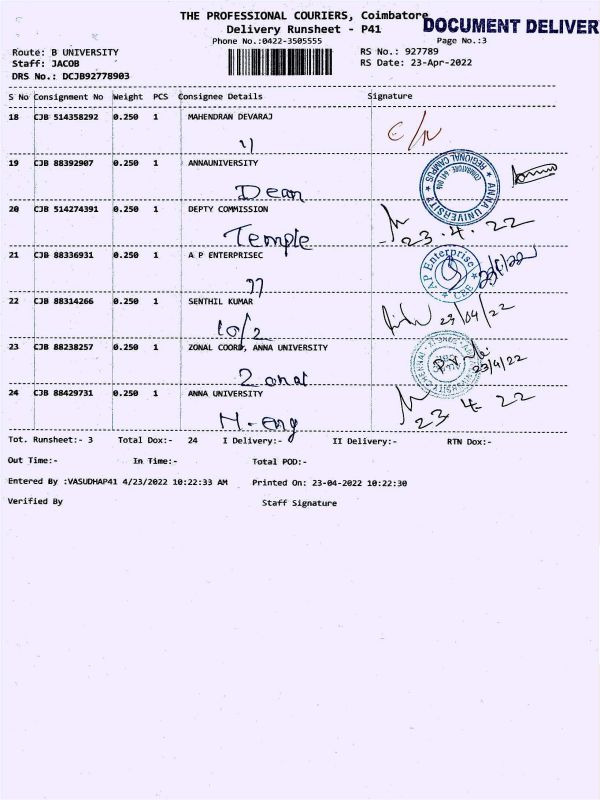 THE PROFESSIONAL COURIERS, Coimbatore
DOCUMENT DELIVER
Delivery Runsheet - P41
Phone No.:0422-3505555
Page No.:3
Route: B UNIVERSITY
RS No.: 927789
Staff: JACOB
RS Date: 23-Apr-2022
DRS No.: DCJB92778903
S No Consignment No Weight PCS Consignee Details Signature
18 CJB 514358292 0.250 1 MAHENDRAN DEVARAJ
19 CJB 88392907 0.250 1 ANNAUNIVERSITY
Dean
ANNA UNIVERSITY
REGIONAL CAMPUS
20 CJB 514274391 0.250 1 DEPTY COMMISSION
Temple
23.4.22
21 CJB 88336931 0.250 1 A P ENTERPRISEC
AP Enterprise
CBE
22 CJB 88314266 0.250 1 SENTHIL KUMAR
10/2
23/04/22
23 CJB 88238257 0.250 1 ZONAL COORD, ANNA UNIVERSITY
Zonal
23/4/22
24 CJB 88429731 0.250 1 ANNA UNIVERSITY
H-eng
23 4. 22
Tot. Runsheet:- 3 Total Dox:- 24 I Delivery:- II Delivery:- RTN Dox:-
Out Time:- In Time:- Total POD:-
Entered By :VASUDHAP41 4/23/2022 10:22:33 AM Printed On: 23-04-2022 10:22:30
Verified By Staff Signature